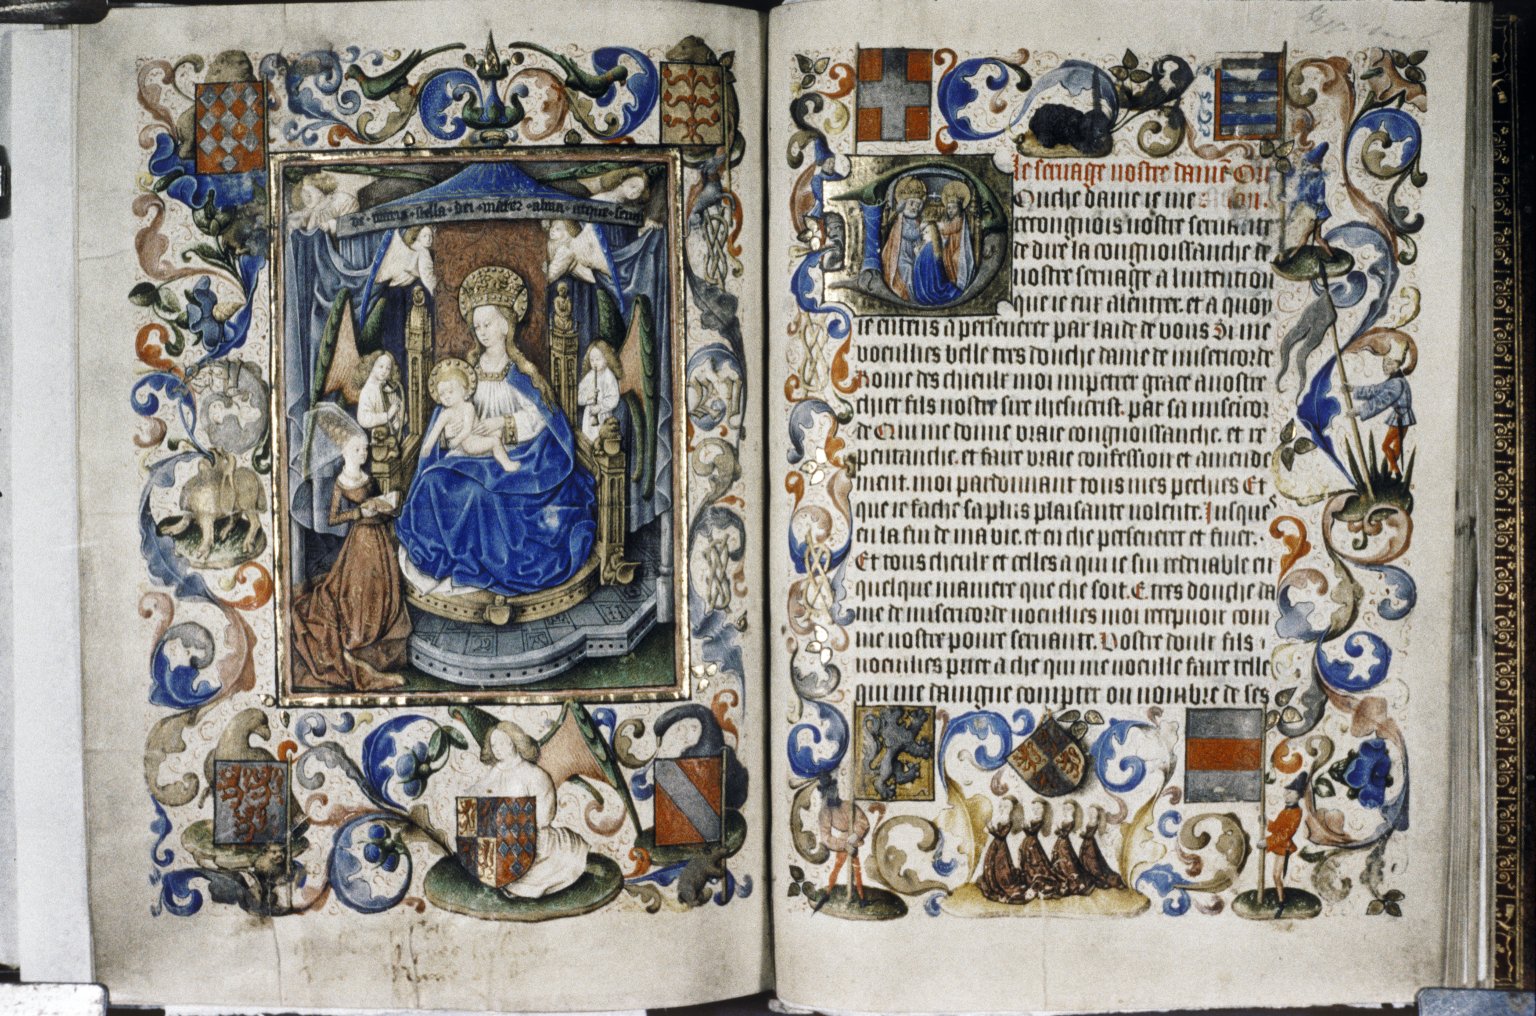 de · maria · stella · dei · mater · alma · atque · semper
le seruage nostre dame Qui
Ouche dame ie me
recongnois uostre seruante
de dire la congnoissanche de
uostre seruage a lintention
que ie eux a lentrer. et a quoy
ie entens a perseuerer par laide de vous Si me
voeullies belle tres douche dame de misericorde
Rome des chieulx moi impetrer grace a uostre
chier fils nostre sire ihesucrist. par sa misericor
de Qui me doinne vraie congnoissanche. et re
pentanche. et faire vraie confession et amende
ment. moi pardonnant tous mes pechies Et
que ie fache sa plus plaisante uolente. Iusques
en la fin de ma vie. et en che perseuerer et finer.
Et tous cheulx et celles a qui ie sui redeuable en
quelque maniere que che soit. E tres douche da
me de misericorde uoeullies moi rechepuoir com
me uostre poure seruante. Vostre doulx fils
uoeullies prier a che qui me uoeulle faire telle
qui me daingne compter ou nombre de ses